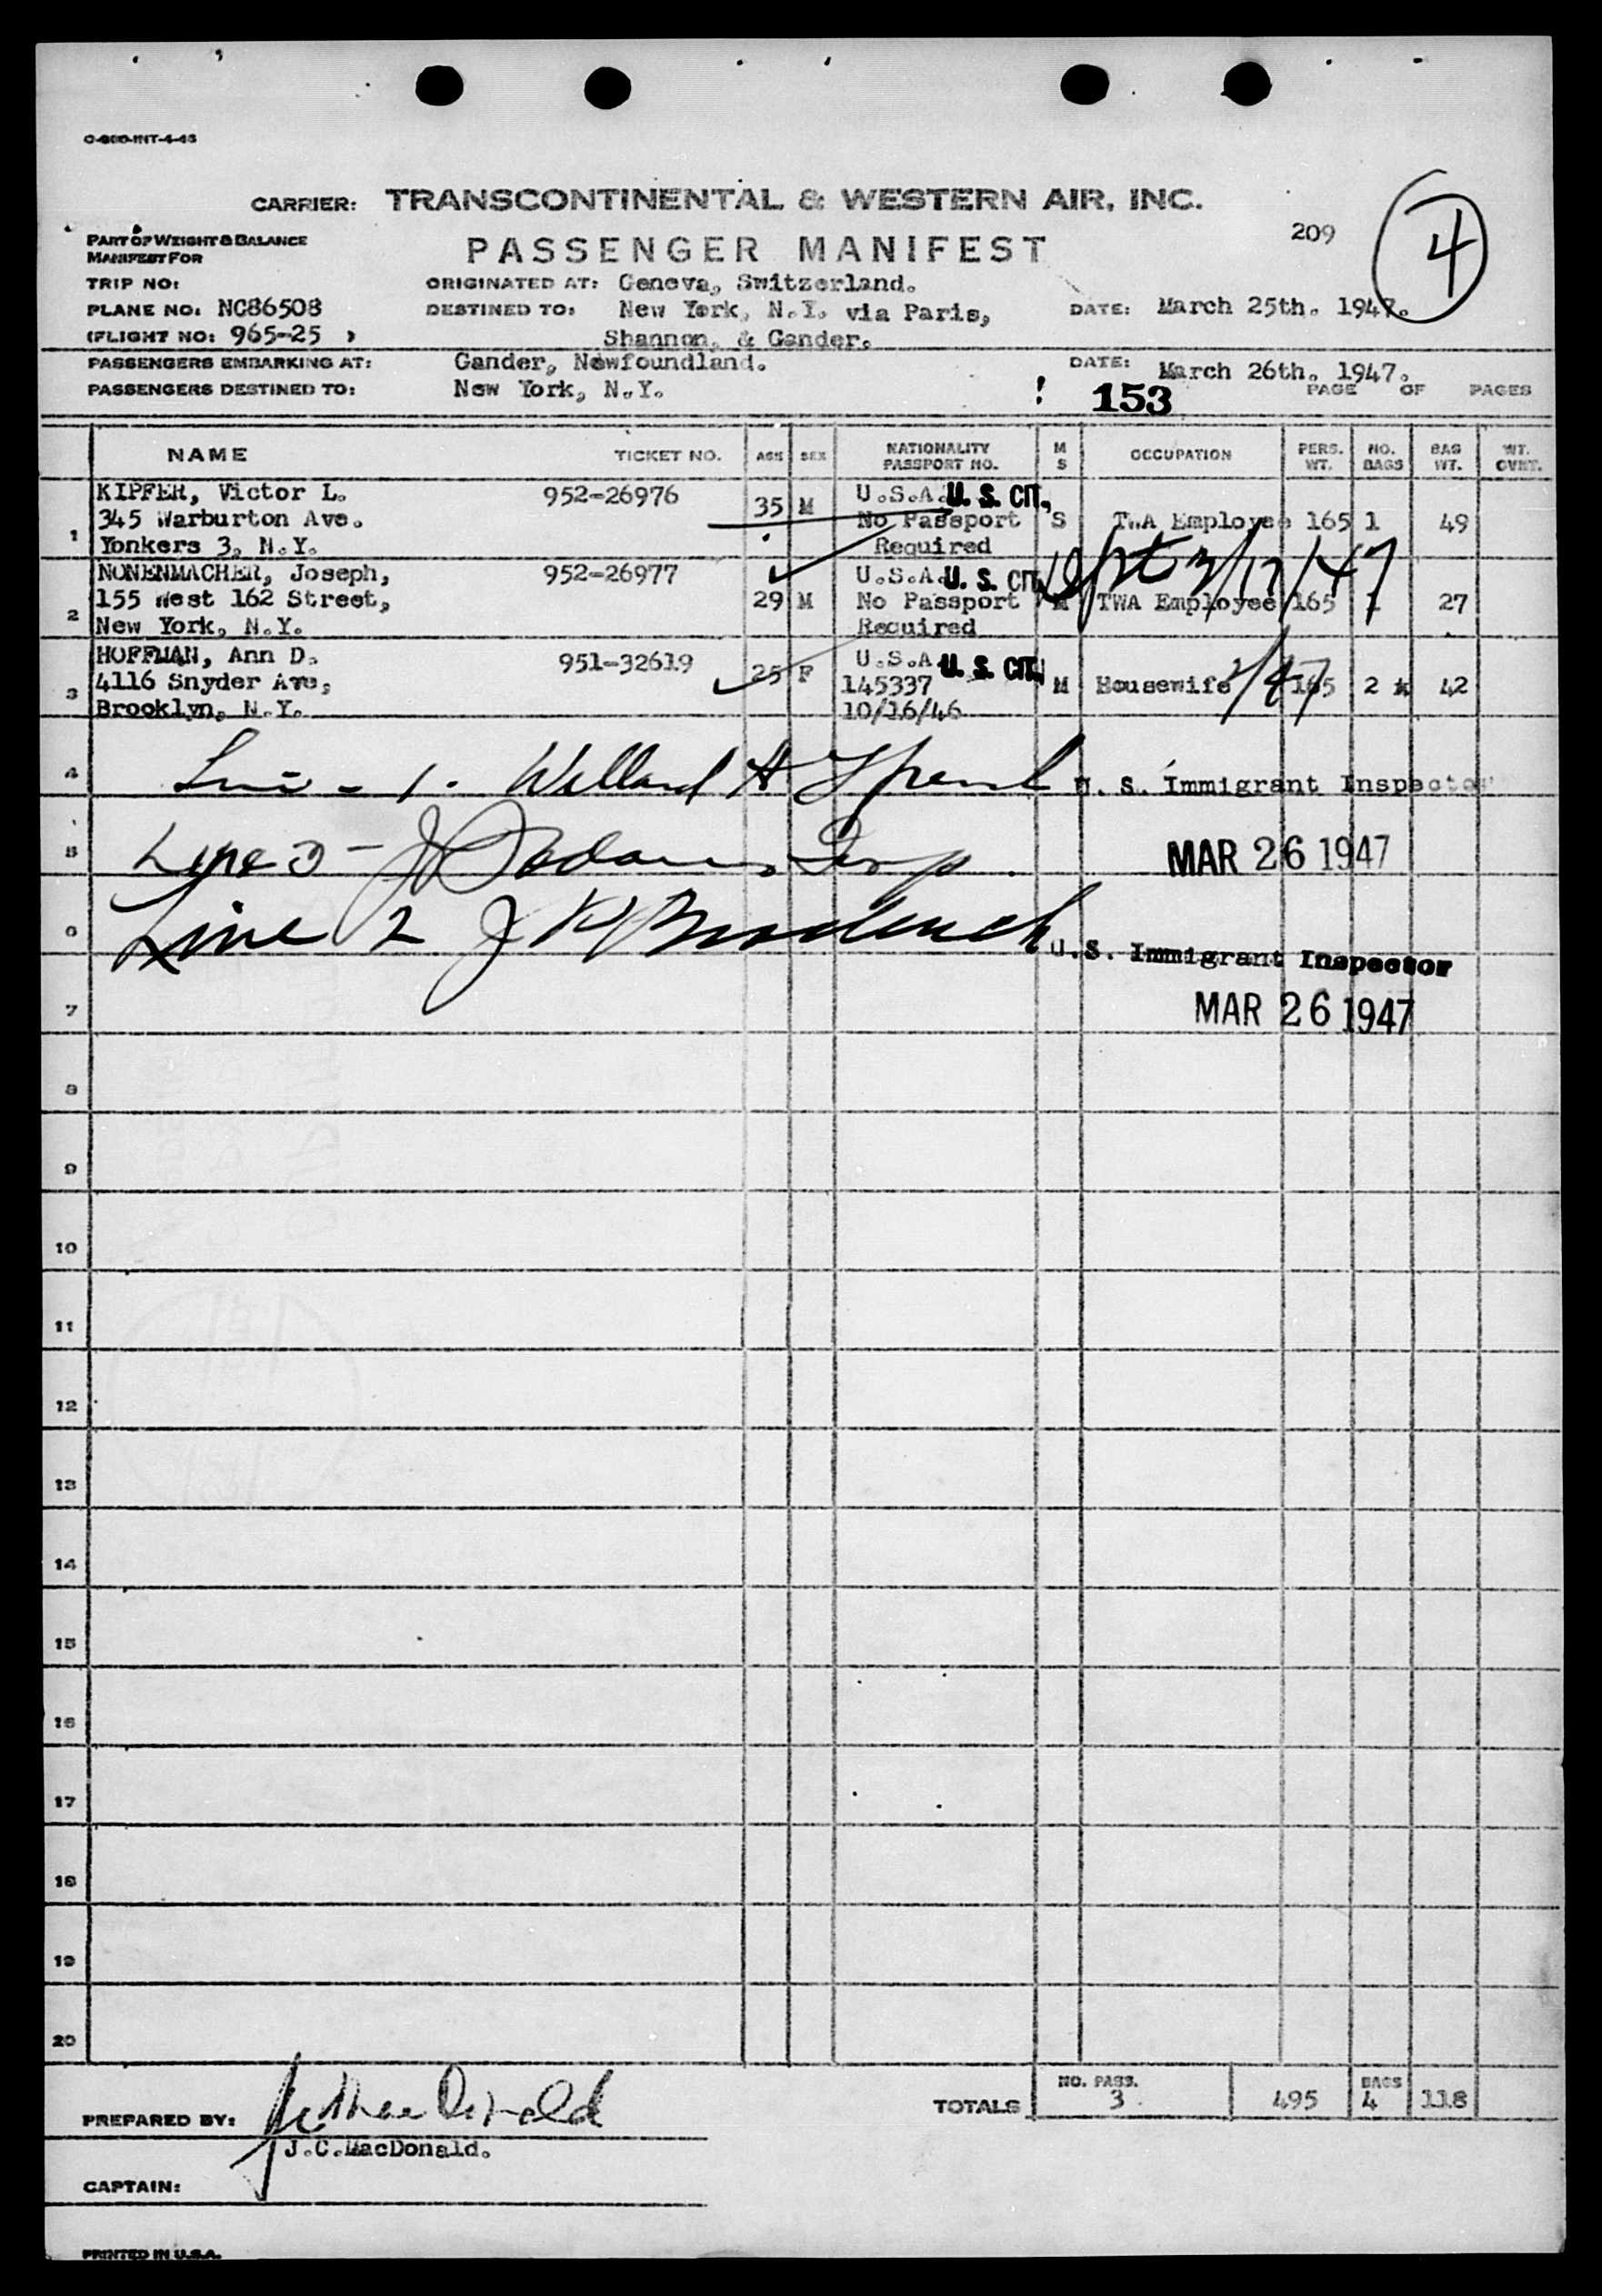 CARRIER: TRANSCONTINENTAL & WESTERN AIR, INC.
209
4
PART OF WEIGHT & BALANCE
MANIFEST FOR
PASSENGER MANIFEST
TRIP NO:
ORIGINATED AT: Geneva, Switzerland.
PLANE NO: NC86508
DESTINED TO: New York, N.Y. via Paris,
DATE: March 25th. 1947.
(FLIGHT NO: 965-25 )
Shannon, & Gander.
PASSENGERS EMBARKING AT: Gander, Newfoundland.
DATE: March 26th. 1947.
PASSENGERS DESTINED TO: New York, N.Y.
153
PAGE OF PAGES
NAME TICKET NO. AGE SEX NATIONALITY PASSPORT NO. M S OCCUPATION PERS. WT. NO. BAGS BAG WT. WT. OVRT.
KIPFER, Victor L. 952-26976 U.S.A. U. S. CIT.
345 Warburton Ave. 35 M No Passport S TWA Employee 165 1 49
1 Yonkers 3, N.Y. Required
NONENMACHER, Joseph, 952-26977 U.S.A. U. S. CIT.
155 West 162 Street, 29 M No Passport M TWA Employee 165 1 27
2 New York, N.Y. Required
HOFFMAN, Ann D. 951-32619 U.S.A. U. S. CIT.
4116 Snyder Ave, 25 F 145337 M Housewife 165 2 42
3 Brooklyn, N.Y. 10/16/46
4 Willard U. S. Immigrant Inspector
5 Line 3 - Insp.
MAR 26 1947
6 Line 2 U.S. Immigrant Inspector
7 MAR 26 1947
8
9
10
11
12
13
14
15
16
17
18
19
20
NO. PASS. BAGS
TOTALS 3 495 4 118
PREPARED BY:
J.C.MacDonald.
CAPTAIN:
PRINTED IN U.S.A.